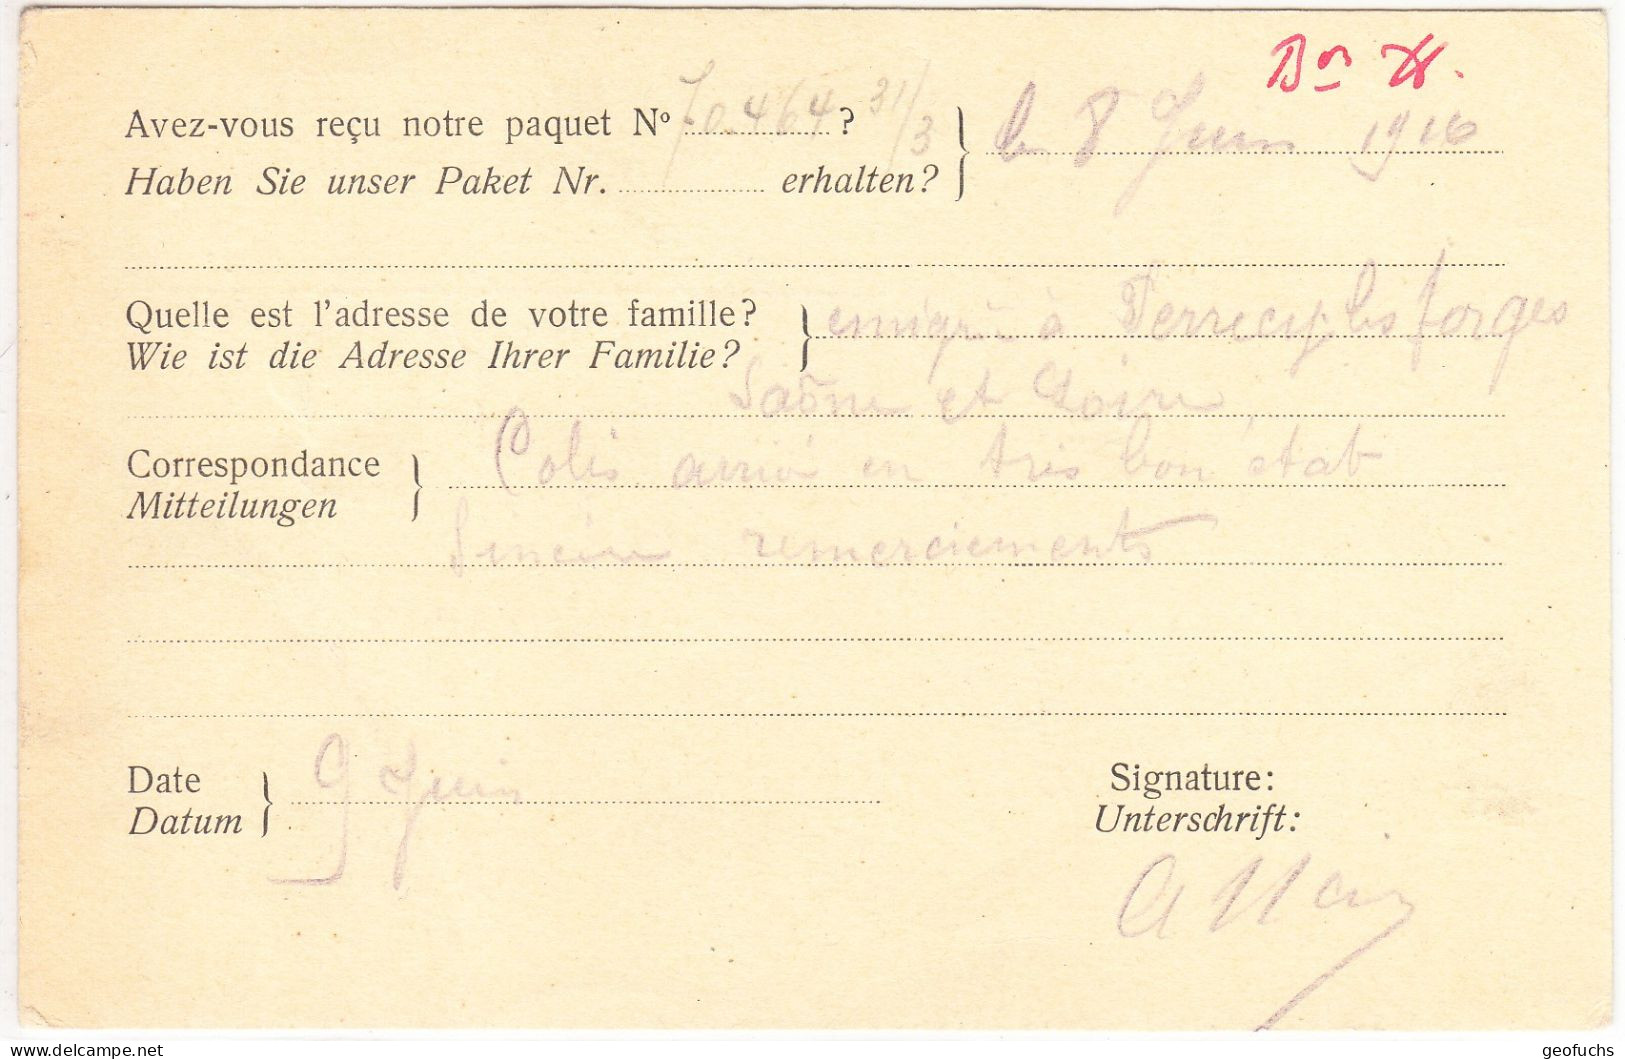 Avez-vous reçu notre paquet Nº 70.464 ? 31/3 le 8 Juin 1916
Haben Sie unser Paket Nr. erhalten?
Quelle est l'adresse de votre famille? emigré à Perrecy les forges
Wie ist die Adresse Ihrer Familie?
Saône et Loire
Correspondance Colis arrivé en très bon état
Mitteilungen
Sincère remerciements
Date 9 Juin
Datum
Signature:
Unterschrift:
geofuchs
www.delcampe.net